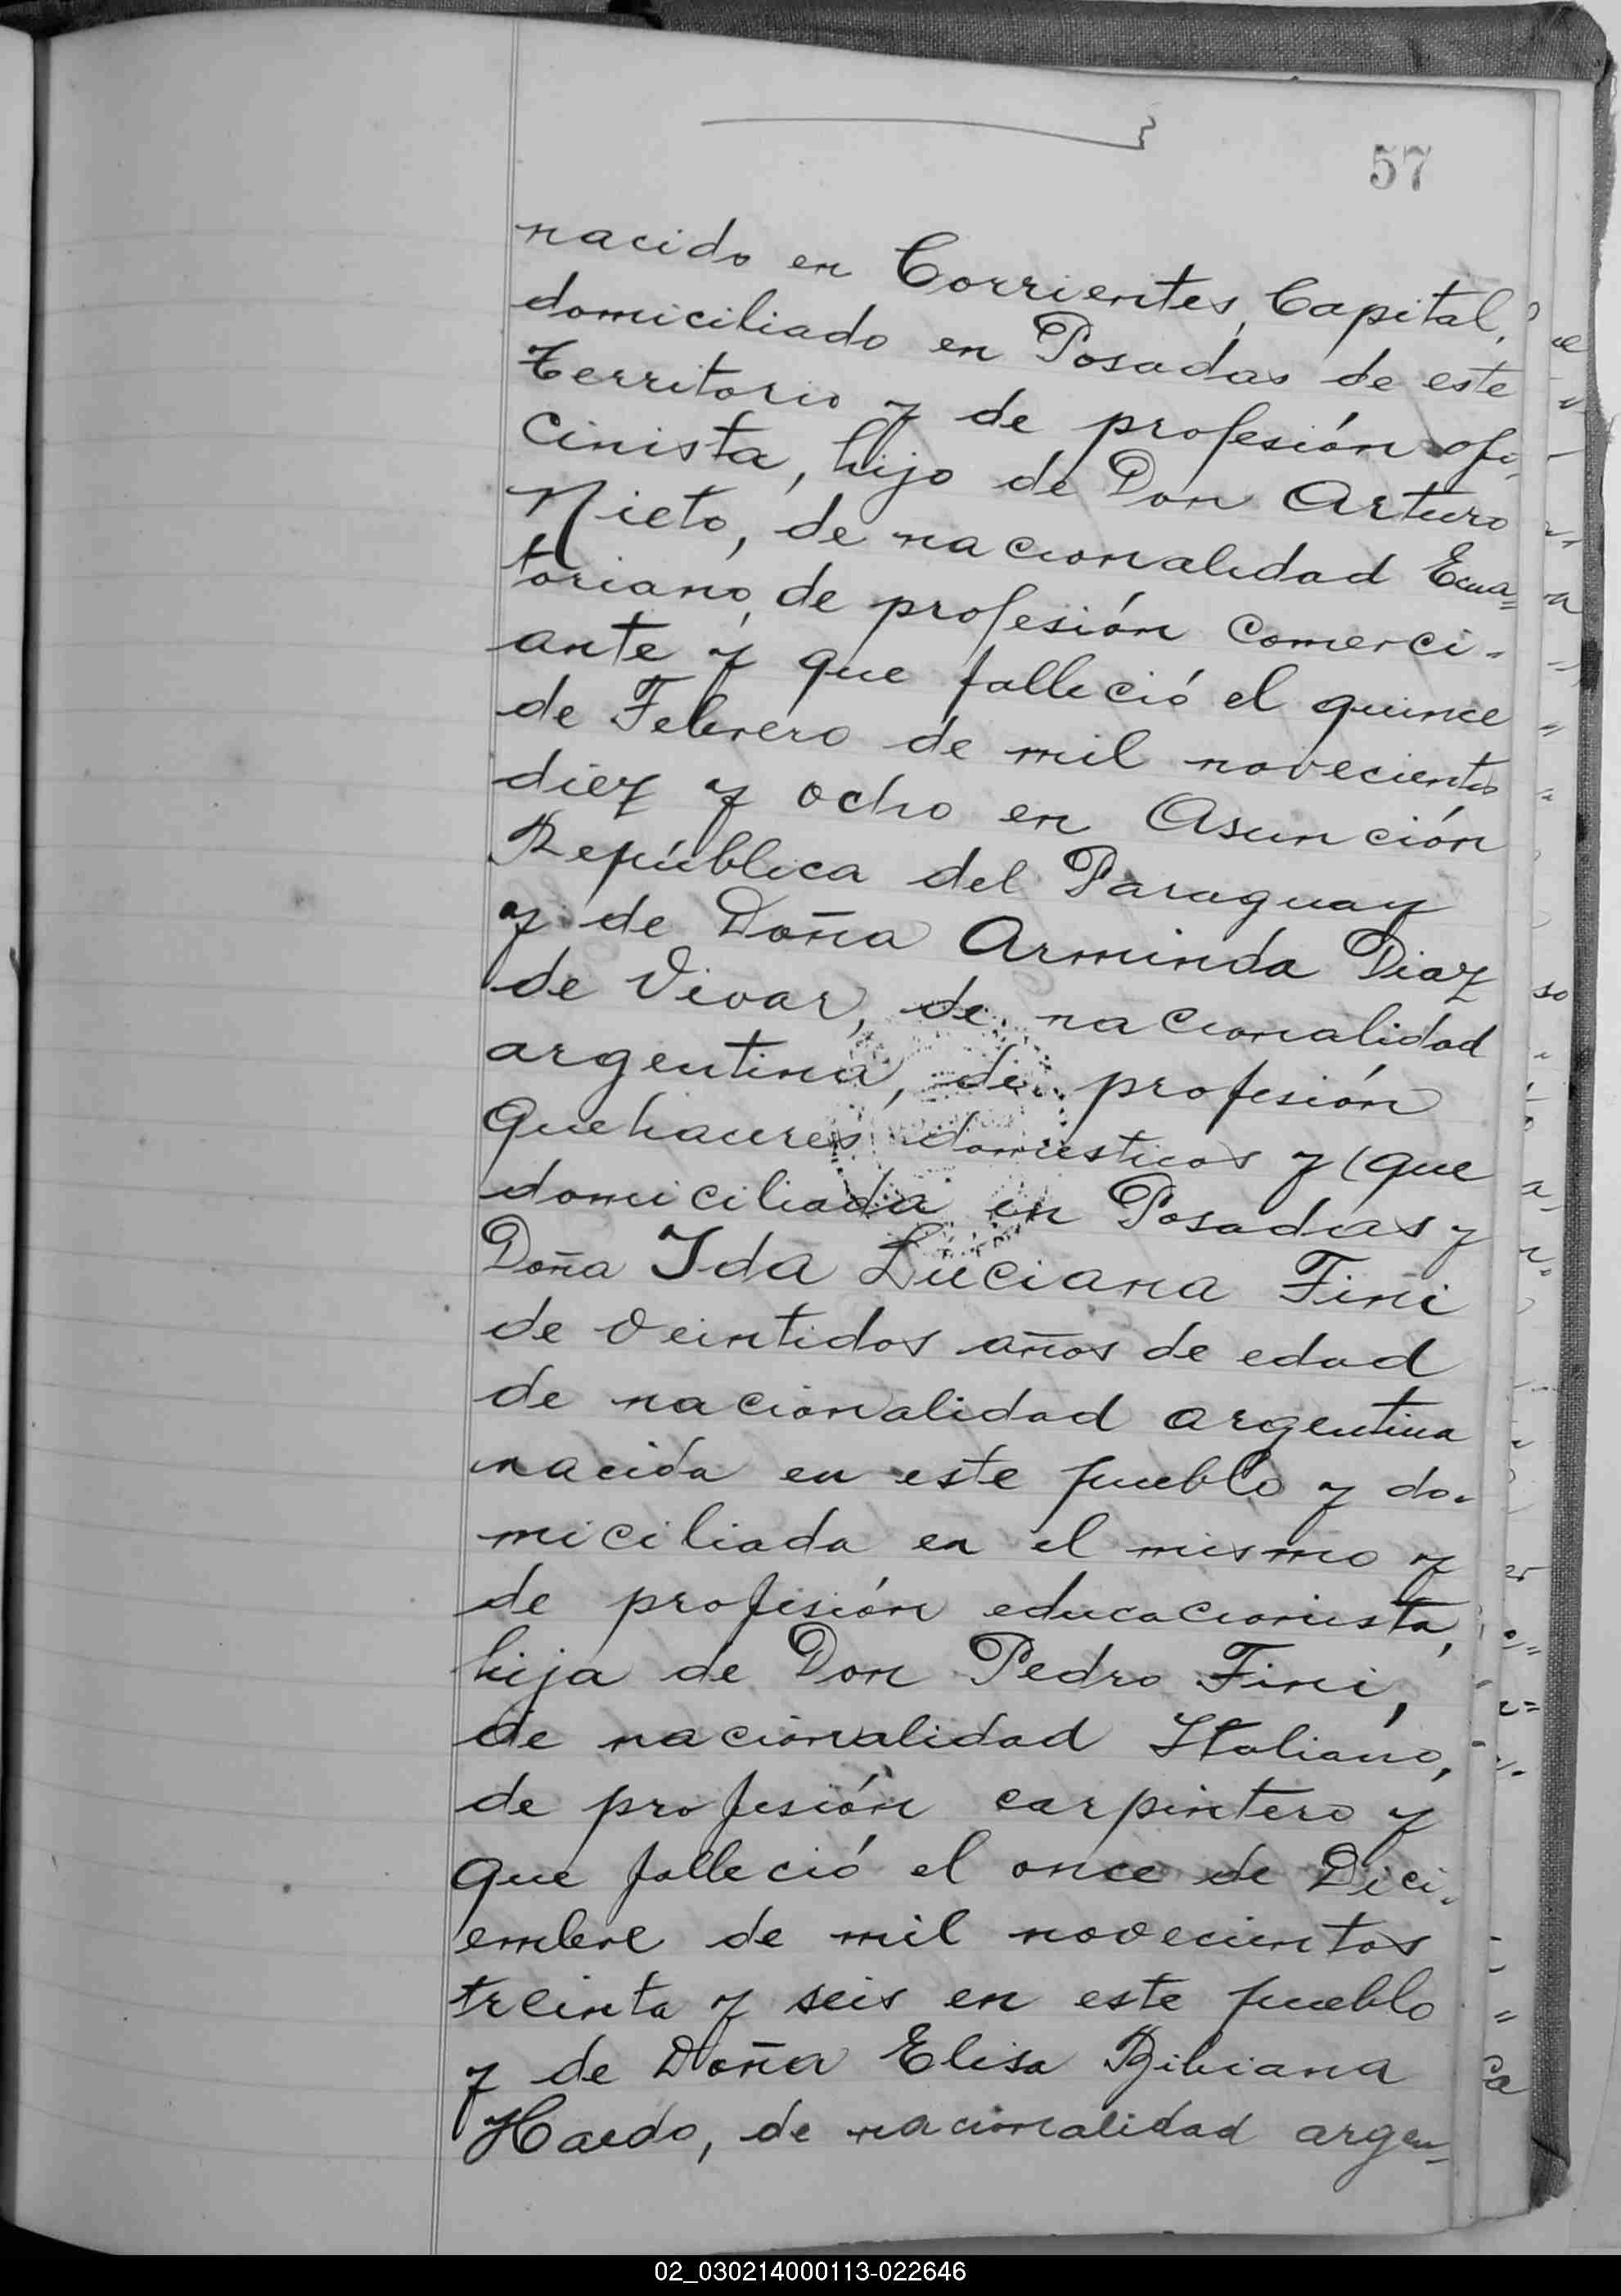 57
nacido en Corrientes, Capital,
domiciliado en Posadas de este
territorio y de profesión ofi-
cinista, hijo de Don Arturo
Nieto, de nacionalidad Ecua=
toriano, de profesión Comerci-
ante y que falleció el quince
de Febrero de mil novecientos
diez y ocho en Asunción
República del Paraguay
y de Doña Arminda Diaz
de Vivar, de nacionalidad
argentina, de profesión
Quehaceres domésticos y (que
domiciliada en Posadas y
Doña Ida Luciana Fini
de veintidos años de edad
de nacionalidad argentina
nacida en este pueblo y do-
miciliada en el mismo y
de profesión educacionista,
hija de Don Pedro Fini,
de nacionalidad Italiano,
de profesión carpintero y
que falleció el once de Dici-
embre de mil novecientos
treinta y seis en este pueblo
y de Doña Elisa Bibiana
Haedo, de nacionalidad argen-
02_030214000113-022646